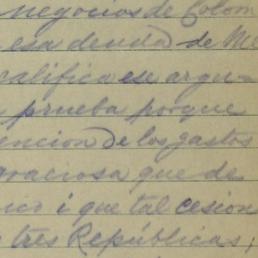 negocios de Colom
esa deuda de Mé
califica ese argu-
prueba porque
encion de los gastos
graciosa que de
ico i que tal cesion
tres Repúblicas;